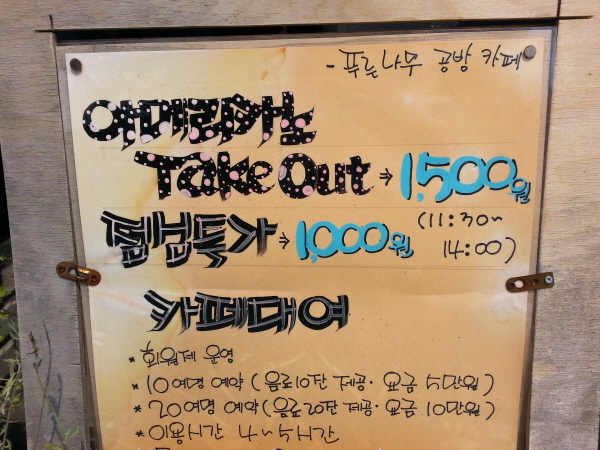 - 푸른나무 공방 카페
아메리카노
Take Out → 1,500원
폭탄특가 → 1,000원 (11:30~
14:00)
카페대여
* 회원제 운영
* 10여명 예약 (음료10잔 제공· 요금 5만원)
* 20여명 예약 (음료20잔 제공· 요금 10만원)
* 이용시간 4~5시간